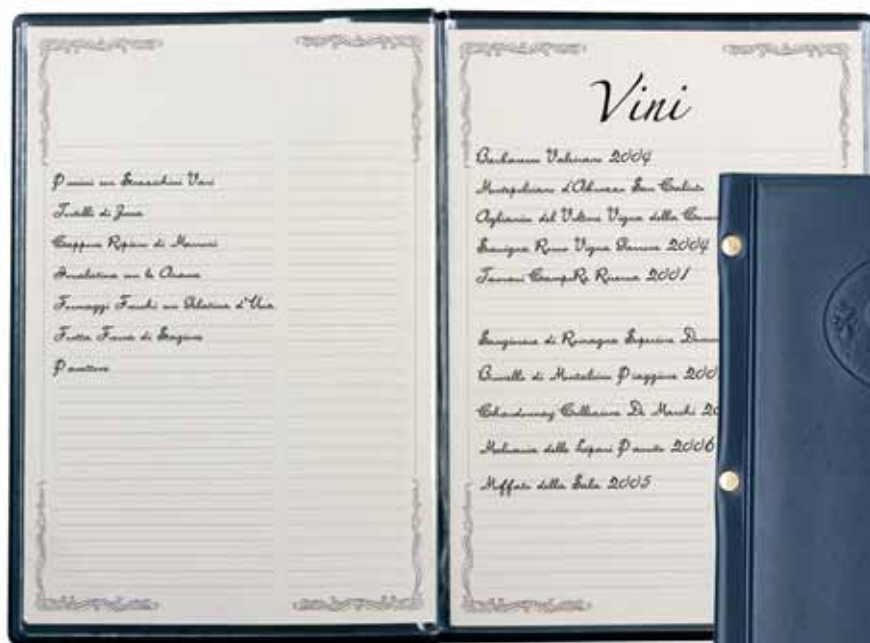 Panini con Stracchini Vari
Tortelli di Zucca
Cappone Ripieno di Marroni
Insalatina con le Arance
Formaggi Freschi con Gelatina d'Uva
Frutta Fresca di Stagione
Panettone
Vini
Barbaresco Valeirano 2004
Montepulciano d'Abruzzo San Calisto
Aglianico del Vulture Vigna della
Vigna 2004
Taurasi Campo Re Riserva 2001
Sangiovese di Romagna Superiore
Brunello di Montalcino Piaggione
Chardonnay Collezione De Marchi
Malvasia delle Lipari Passito 2006
Muffato della Sala 2005